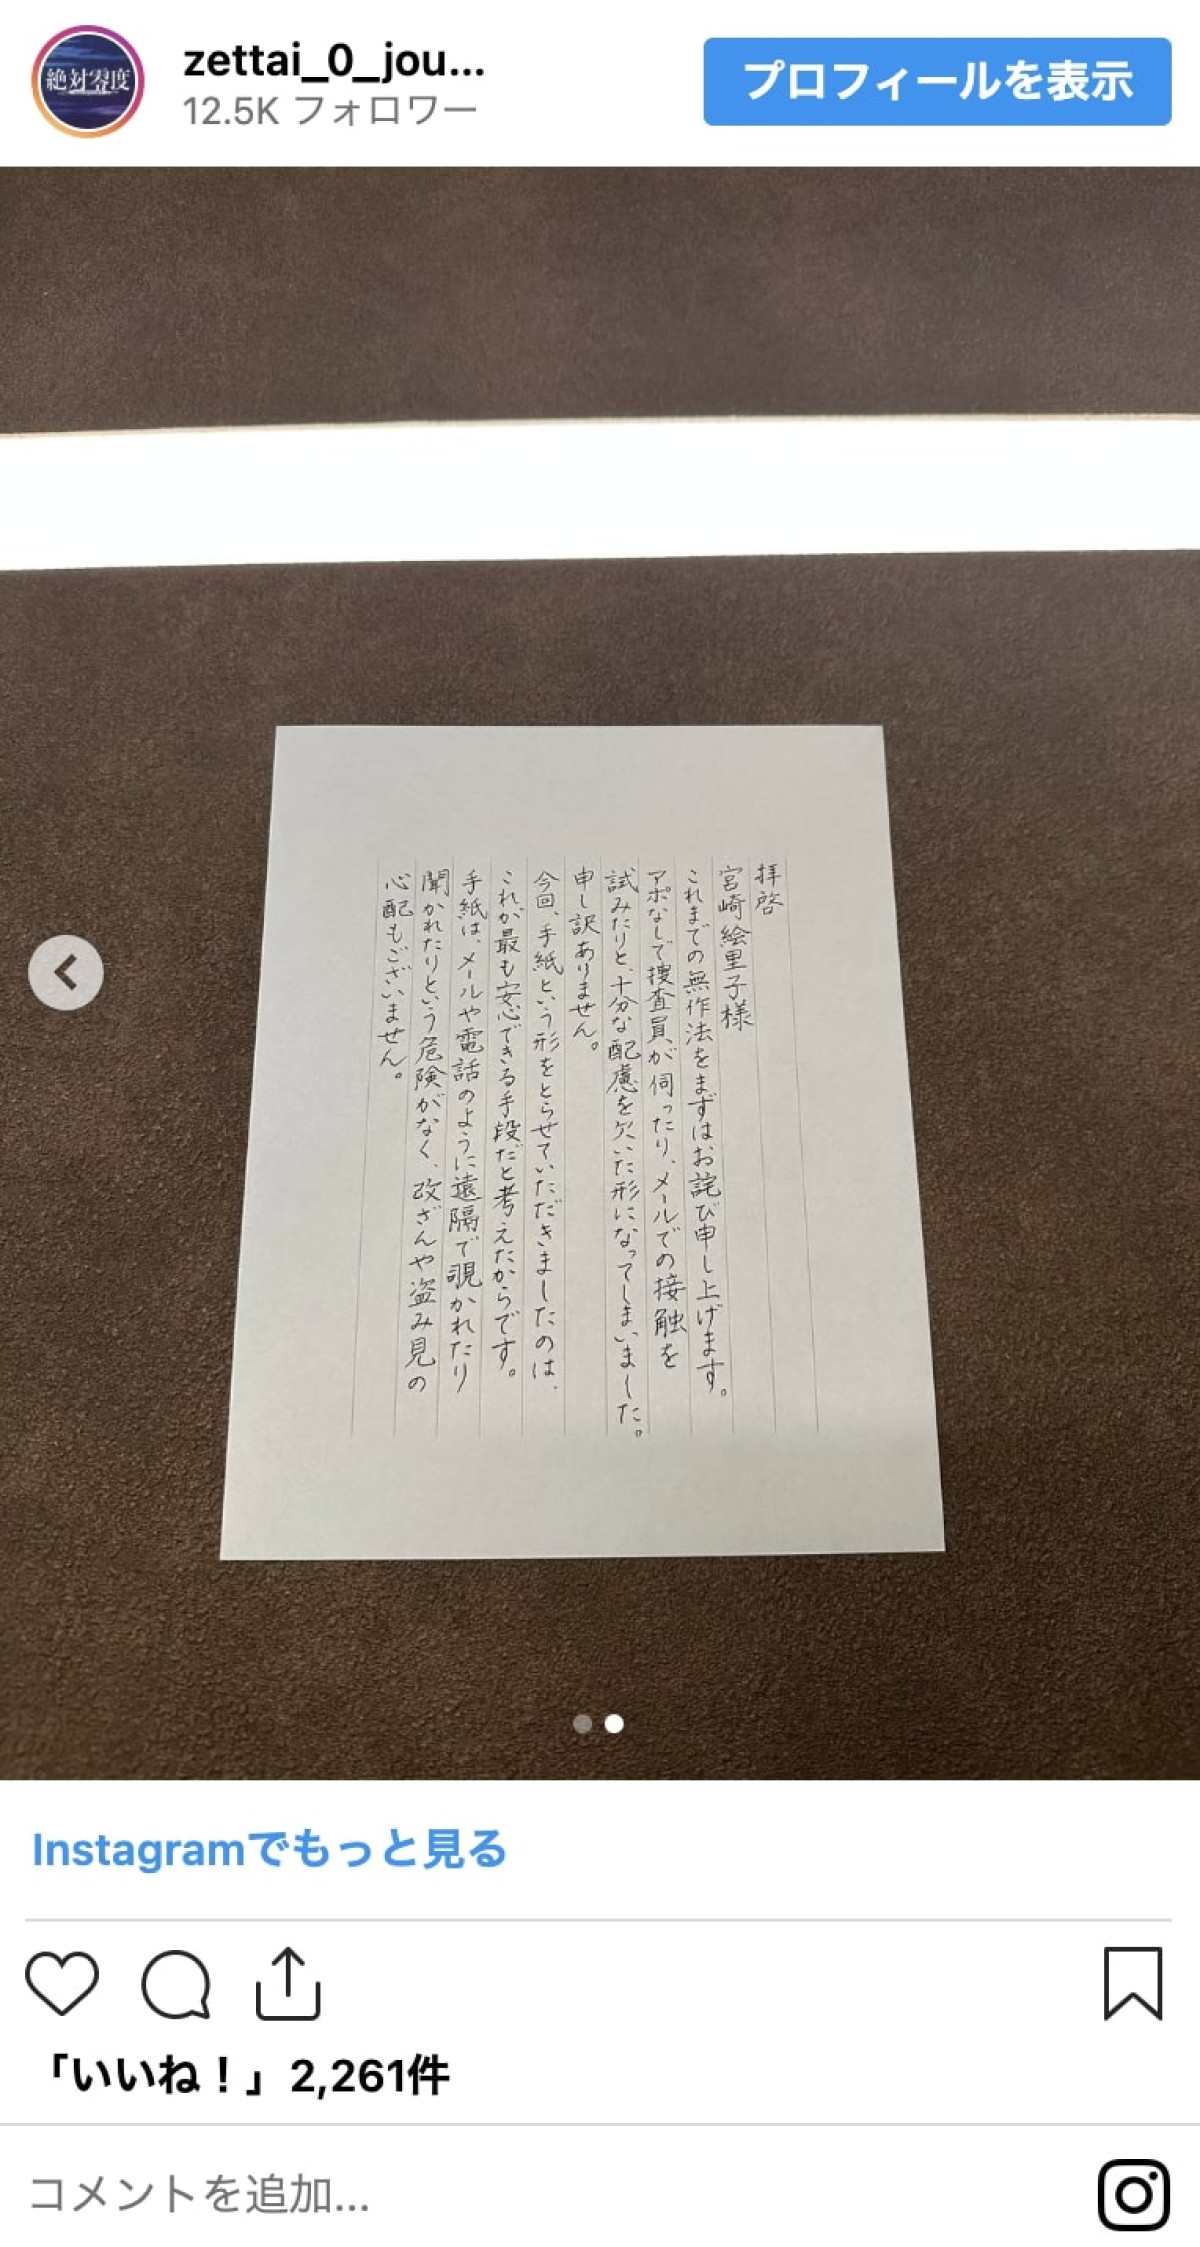 絶対零度
zettai_0_jou...
12.5K フォロワー
プロフィールを表示
拝啓
宮崎絵里子様
これまでの無作法をまずはお詫び申し上げます。
アポなしで捜査員が伺ったり、メールでの接触を
試みたりと、十分な配慮を欠いた形になってしまいました。
申し訳ありません。
今回、手紙という形をとらせていただきましたのは、
これが最も安心できる手段だと考えたからです。
手紙は、メールや電話のように遠隔で覗かれたり
聞かれたりという危険がなく、改ざんや盗み見の
心配もございません。
Instagramでもっと見る
「いいね！」2,261件
コメントを追加...